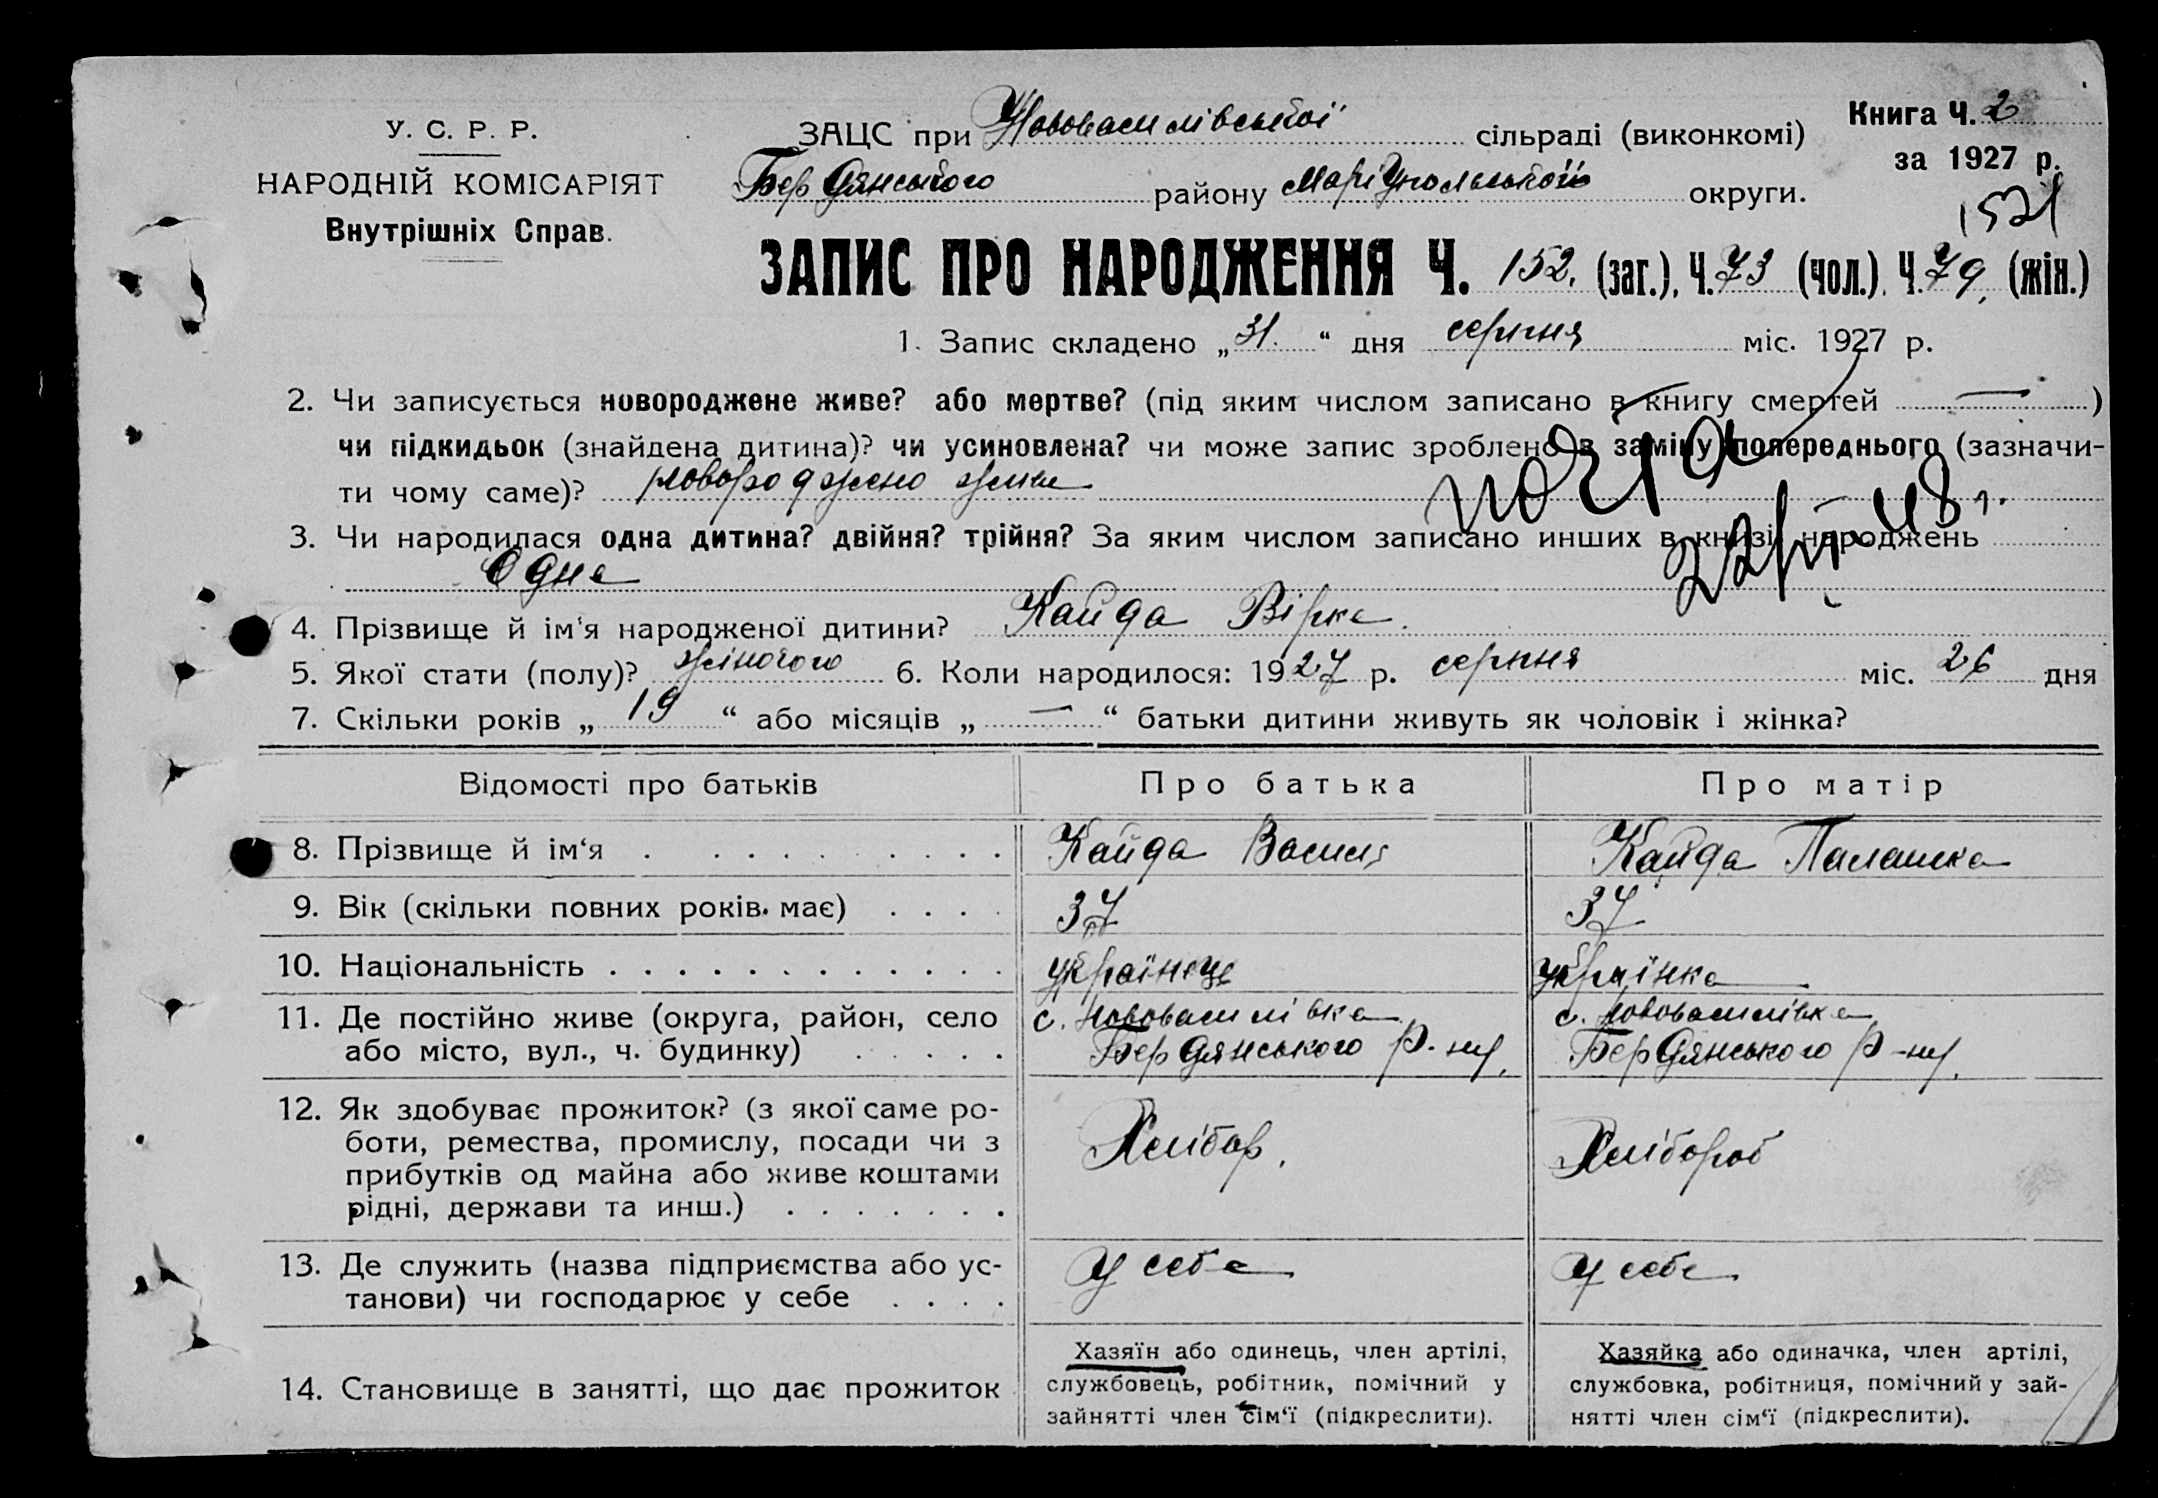 У. С. Р. Р.
НАРОДНІЙ КОМІСАРІЯТ
Внутрішніх Справ.
ЗАЦС при Нововасилівської сільраді (виконкомі)
Бердянського району Маріупольської округи.
Книга Ч. 2
за 1927 р.
1521
ЗАПИС ПРО НАРОДЖЕННЯ Ч. 152. (заг.), Ч. 73 (чол.). Ч. 79. (жін.)
1. Запис складено „31.“ дня серпня міс. 1927 р.
2. Чи записується новороджене живе? або мертве? (під яким числом записано в книгу смертей —)
чи підкидьок (знайдена дитина)? чи усиновлена? чи може запис зроблено в заміну попереднього (зазначи-
ти чому саме)? новороджено живе
3. Чи народилася одна дитина? двійня? трійня? За яким числом записано инших в книзі народжень
Одна
4. Прізвище й ім'я народженої дитини? Кайда Вірка.
5. Якої стати (полу)? жіночого 6. Коли народилося: 1927 р. серпня міс. 26 дня
7. Скільки років „19“ або місяців „—“ батьки дитини живуть як чоловік і жінка?
Відомості про батьків Про батька Про матір
8. Прізвище й ім‘я . . . . . . . . . . Кайда Василь Кайда Палашка
9. Вік (скільки повних років має) . . . . 37 37
10. Національність . . . . . . . . . . . . українець українка
11. Де постійно живе (округа, район, село
або місто, вул., ч. будинку) . . . . .
с. Нововасилівка
Бердянського р-ну,
с. Нововасилівка
Бердянського р-ну,
12. Як здобуває прожиток? (з якої саме ро-
боти, ремества, промислу, посади чи з
прибутків од майна або живе коштами
рідні, держави та инш.) . . . . . . .
Хлібор.
Хлібороб
13. Де служить (назва підприємства або ус-
танови) чи господарює у себе . . . .
У себе
У себе
14. Становище в занятті, що дає прожиток
Хазяїн або одинець, член артілі,
службовець, робітник, помічний у
зайнятті член сім‘ї (підкреслити).
Хазяйка або одиначка, член артілі,
службовка, робітниця, помічний у зай-
нятті член сім‘ї (підкреслити).